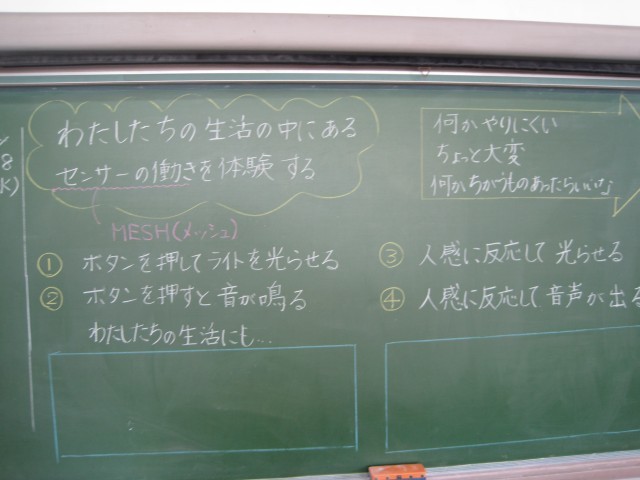 わたしたちの生活の中にある
センサーの働きを体験する
MESH(メッシュ)
① ボタンを押してライトを光らせる
② ボタンを押すと音が鳴る
わたしたちの生活にも…
何かやりにくい
ちょっと大変
何かちがうものあったらいいな」
③ 人感に反応して光らせる
④ 人感に反応して音声が出る
8
K)